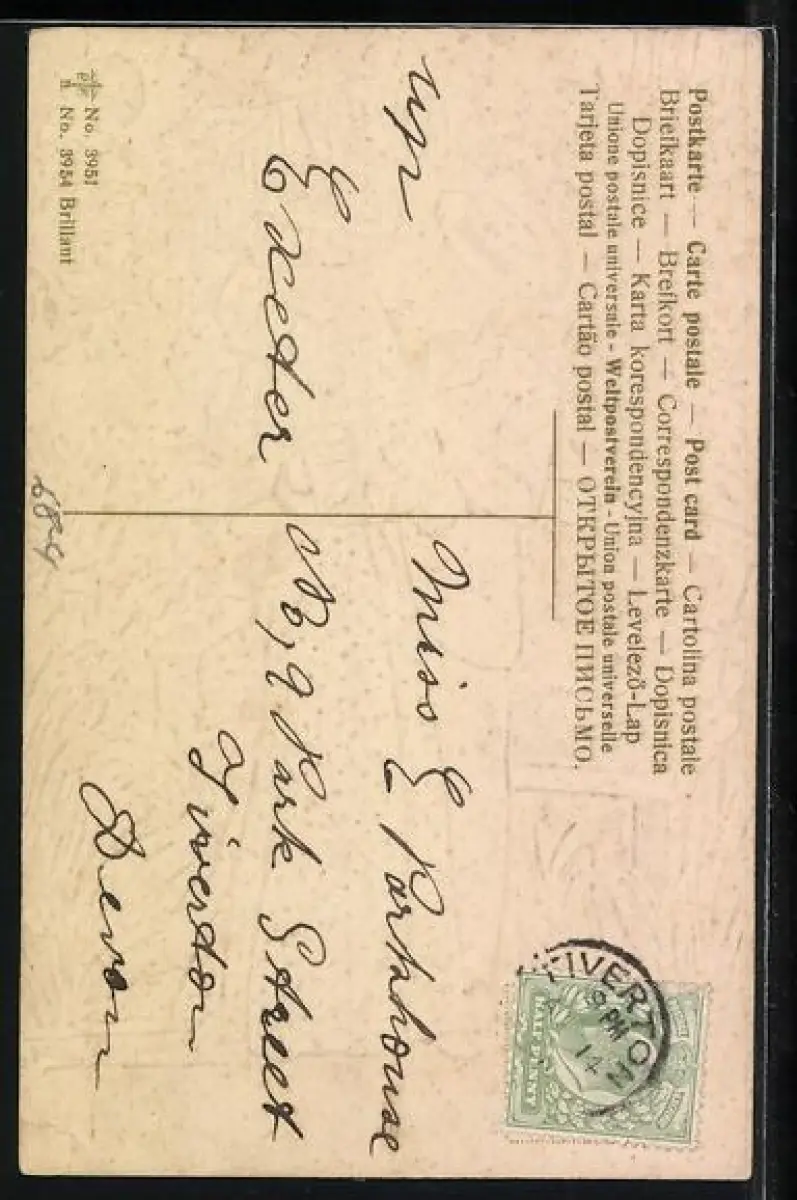 Postkarte — Carte postale — Post card — Cartolina postale
Briefkaart — Brefkort — Correspondenzkarte — Dopisnica
Dopisnice — Karta korespondencyjna — Levelező-Lap
Unione postale universale - Weltpostverein - Union postale universelle
Tarjeta postal — Cartão postal — ОТКРЫТОЕ ПИСЬМО.
Exeter
Miss E Parkhouse
No, 9 Park Street
Tiverton
Devon
TIVERTON
PM
14
HALFPENNY
No. 3951
No. 3954 Brillant
684